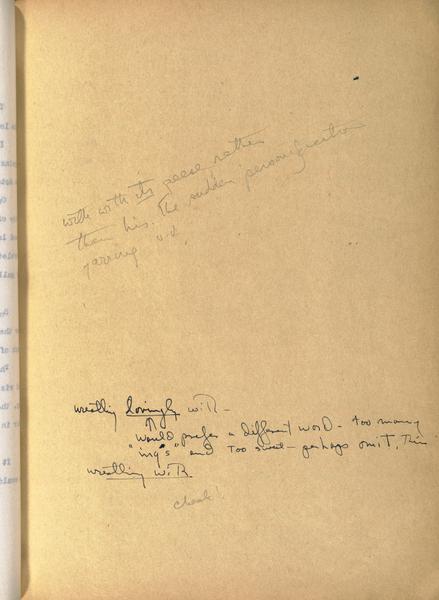 with with its peese rather
than his. The sudden personification
jarring
wrestling lovingly with —
would prefer a different word — too many
"ing's" and too sweet — perhaps omit, Thin
wrestling with
check!